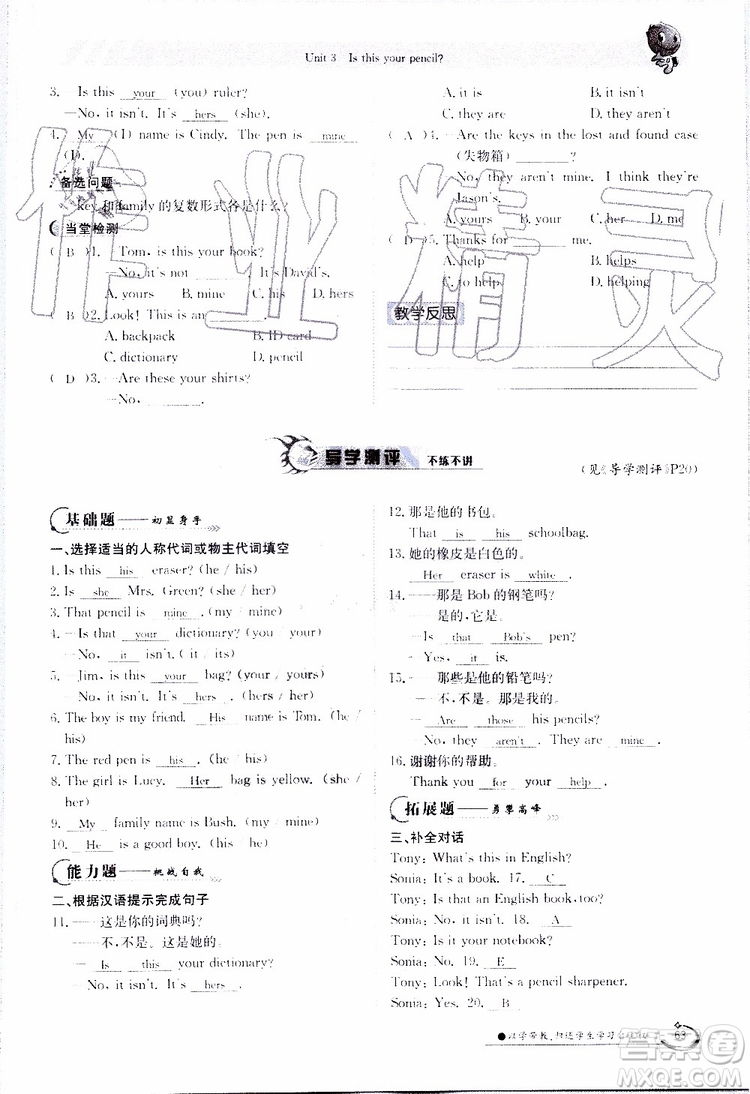 Unit 3 Is this your pencil?
3. Is this your (you) ruler?
—No, it isn't. It's hers (she).
4. My (I) name is Cindy. The pen is mine
(I).
备选问题
key 和 family 的复数形式各是什么?
当堂检测
( B )1. —Tom, is this your book?
—No, it's not ______. It's David's.
A. yours B. mine C. his D. hers
( B )2. Look! This is an ______.
A. backpack B. ID card
C. dictionary D. pencil
( D )3. —Are these your shirts?
—No, ______.
A. it is B. it isn't
C. they are D. they aren't
( A )4. —Are the keys in the lost and found case
(失物箱) ______?
—No, they aren't mine. I think they're
Jason's.
A. yours B. your C. her D. me
( D )5. Thanks for ______ me.
A. help B. helps
C. to help D. helping
教学反思
导学测评 不练不讲
(见《导学测评》P20)
基础题——初显身手
一、选择适当的人称代词或物主代词填空
1. Is this his eraser? (he / his)
2. Is she Mrs. Green? (she / her)
3. That pencil is mine. (my / mine)
4. —Is that your dictionary? (you / your)
—No, it isn't. (it / its)
5. —Jim, is this your bag? (your / yours)
—No, it isn't. It's hers. (hers / her)
6. The boy is my friend. His name is Tom. (he /
his)
7. The red pen is his. (he / his)
8. The girl is Lucy. Her bag is yellow. (she /
her)
9. My family name is Bush. (my / mine)
10. He is a good boy. (he / his)
能力题——挑战自我
二、根据汉语提示完成句子
11. ——这是你的词典吗?
——不,不是。这是她的。
—Is this your dictionary?
—No, it isn't. It's hers.
12. 那是他的书包。
That is his schoolbag.
13. 她的橡皮是白色的。
Her eraser is white.
14. ——那是 Bob 的钢笔吗?
——是的,它是。
—Is that Bob's pen?
—Yes, it is.
15. ——那些是他的铅笔吗?
——不,不是。那是我的。
—Are those his pencils?
—No, they aren't. They are mine.
16. 谢谢你的帮助。
Thank you for your help.
拓展题——勇攀高峰
三、补全对话
Tony: What's this in English?
Sonia: It's a book. 17. C
Tony: Is that an English book, too?
Sonia: No, it isn't. 18. A
Tony: Is it your notebook?
Sonia: No. 19. E
Tony: Look! That's a pencil sharpener.
Sonia: Yes. 20. B
63
作业精灵
答案圈